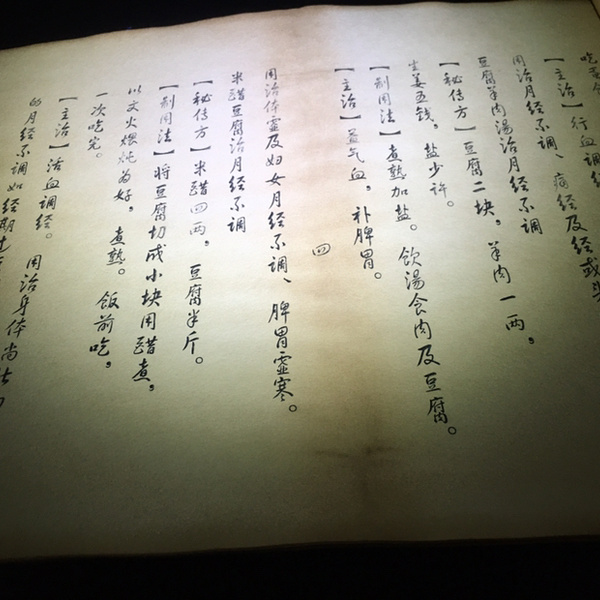 【主治】行血調經
用治月经不調、痛经及经或
用治月经不調
豆腐羊肉湯治月经不調
【秘传方】豆腐二块。羊肉一两。
生姜五钱。盐少许。
【制用法】煮熟加盐。飲湯食肉及豆腐。
【主治】益气血。补脾胃。
四
用治体虚及妇女月经不調、脾胃虚寒。
米醋豆腐治月经不調
【秘传方】米醋四两。豆腐半斤。
【制用法】将豆腐切成小块用醋煮。
以文火煨炖为好。煮熟。饭前吃。
一次吃完。
【主治】活血調经。用治身体尚
的月经不調如经期